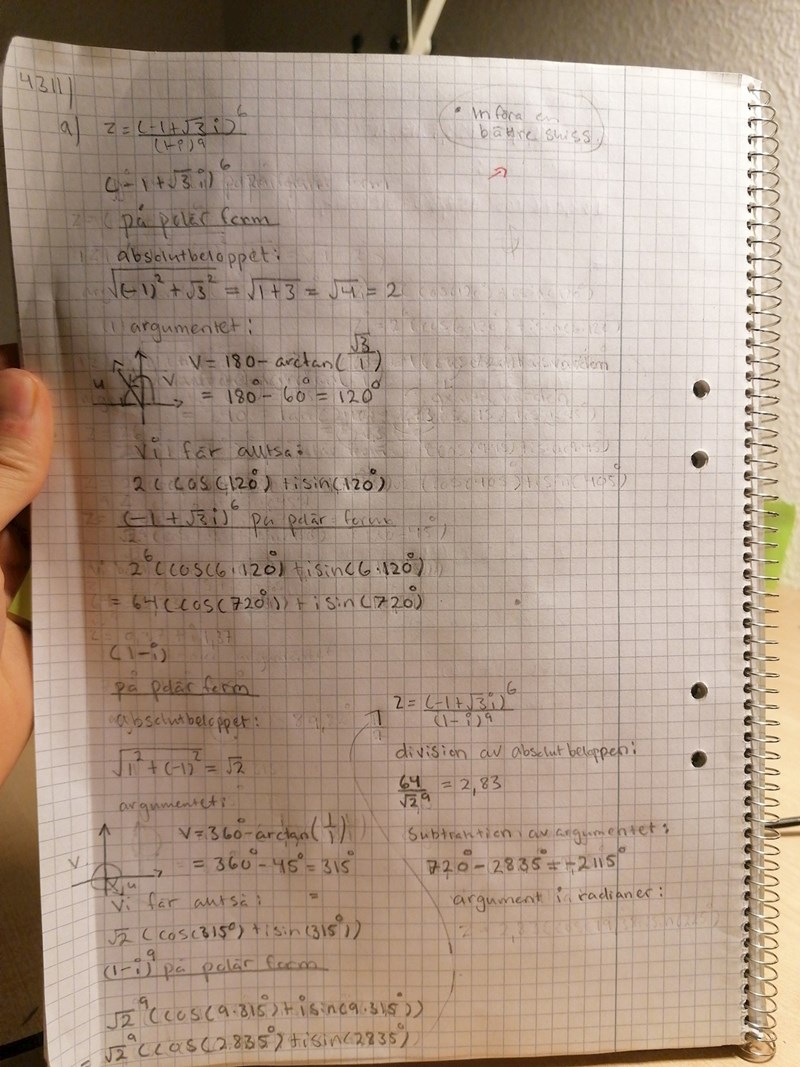 4311)
a) z = (-1+√3 i)^6 / (1-i)^9
• Införa en
bättre skiss
(-1+√3 i)^6
på polär form
absolutbeloppet:
√((-1)^2 + √3^2) = √(1+3) = √4 = 2
argumentet:
u v
V = 180 - arctan(√3/1)
= 180° - 60° = 120°
Vi får alltså:
2 (cos(120°) + isin(120°)
(-1+√3 i)^6 på polär form
2^6 (cos(6·120°) + isin(6·120°)
= 64 (cos(720°)) + isin(720°)
(1-i)
på polär form
absolutbeloppet:
√(1^2 + (-1)^2) = √2
argumentet:
V u
V = 360° - arctan(1/1)
= 360° - 45° = 315°
Vi får alltså: =
√2 (cos(315°) + isin(315°))
(1-i)^9 på polär form
√2^9 (cos(9·315°) + isin(9·315°))
= √2^9 (cos(2835°) + isin(2835°)
z = (-1+√3 i)^6 / (1-i)^9
division av absolutbeloppen:
64/√2^9 = 2,83
Subtraktion av argumentet:
720° - 2835° = -2115°
argument i radianer: